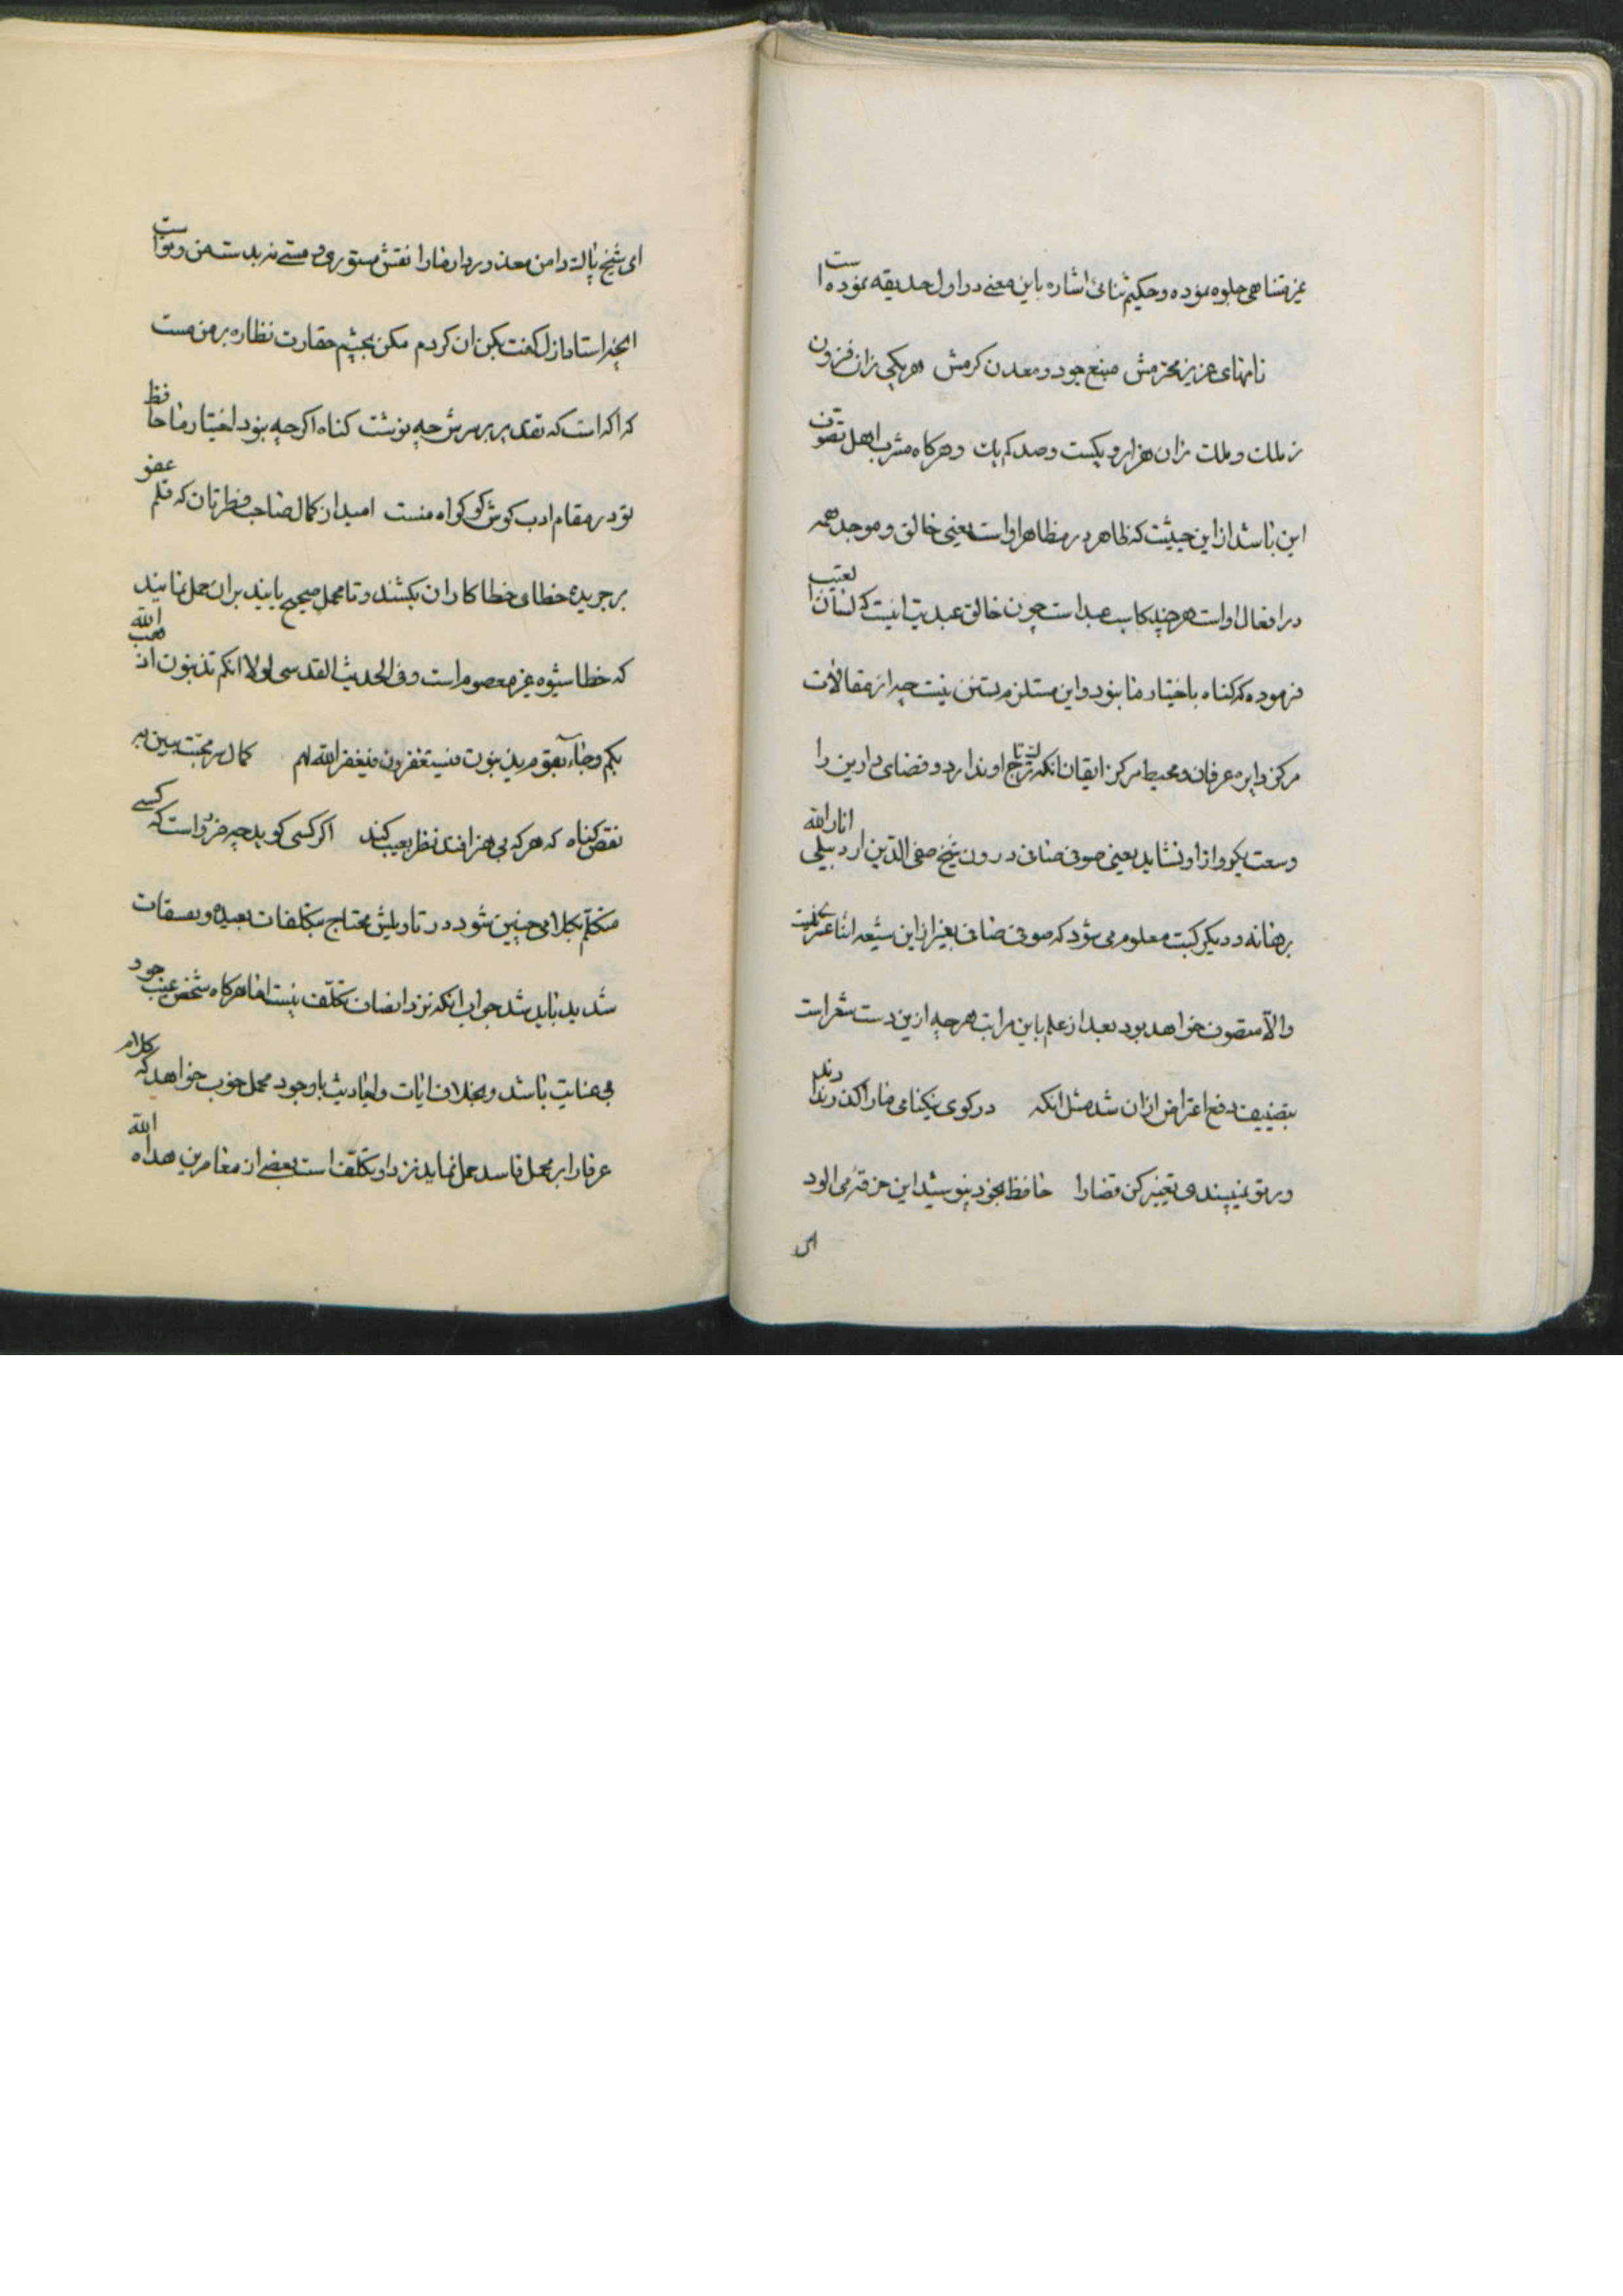 غیر متناهی جلوه نموده و حکیم ثنائی اشاره باین معنی در اول حدیقه نموده است
نامهای عزیز محترمش منبع جود و معدن کرمش هر یکی زان فزون
ز ملک و ملت زان هزار و یکست و صد کم یک و هرکاه مشرب اهل تصوف
این باشد از این حیثیت که ظاهر در مظاهر اواست یعنی خالق و موجد همه
در افعال اواست هر چند کاسب عبد است چون خالق عبد نیست که لسان الغیب
فرموده که کناه باختیار ما نبود و این مستلزم تسنن نیست چه از مقالات
مرکز دایره عرفان و محیط مرکز ایقان انکه او ندارد و فضای دارین را
وسعت او نشاید یعنی صوفی صافی درون شیخ صفی الدین اردبیلی انار الله
برهانه و دیکر کتب معلوم می شود که صوفی صافی بغیر از این شیعه اثنا عشر نیست
والا متصوف خواهد بود بعد از علم باین مراتب هر چه ازین دست شعر است
دفع اعتراض ازان شد مثل انکه در کوی نیکنامی ما را کذر ندادند
ور تو نمیپسندی تغییر کن قضا را حافظ بخود نپوشید این خرقه می الود
ای
ای شیخ پاک دامن معذور دار ما را نقش مستوری و مستی نه بدست من و تو است
انچه استاد ازل کفت بکن ان کردم مکن بچشم حقارت نظاره بر من مست
که اکه است که تقدیر بر سرش چه نوشت کناه اکرچه نبود اختیار ما حافظ
تو در مقام ادب کوش کو کواه منست امید از کمال صاحب فطرتان که قلم عفو
بر جریده خطای خطا کاران بکشند و تا محمل صحیح یابند بران حمل نمایند
که خطا شیوه غیر معصوم است و فی الحدیث القدسی لولا انکم تذنبون لذهب الله
بکم و جاء بقوم یذنبون فیستغفرون فیغفر الله لهم کمال سر محبت ببین نه
نقص کناه که هر که بی هنر افتد نظر بعیب کند اکر کسی کوید چه ضرور است که کسی
متکلم بکلامی چنین شود در تاویلش محتاج بتکلفات بعیده و تعسفات
شدید باید شد جواب انکه نزد انصاف تکلف نیست اما هرکاه شخص عیب جو
بی عنایت باشد و بخلاف ایات و احادیث با وجود محمل خوب خواهد که کلام
عرفا را بر محمل فاسد حمل نماید نزد او تکلف است بعضی از معاصرین هداه الله